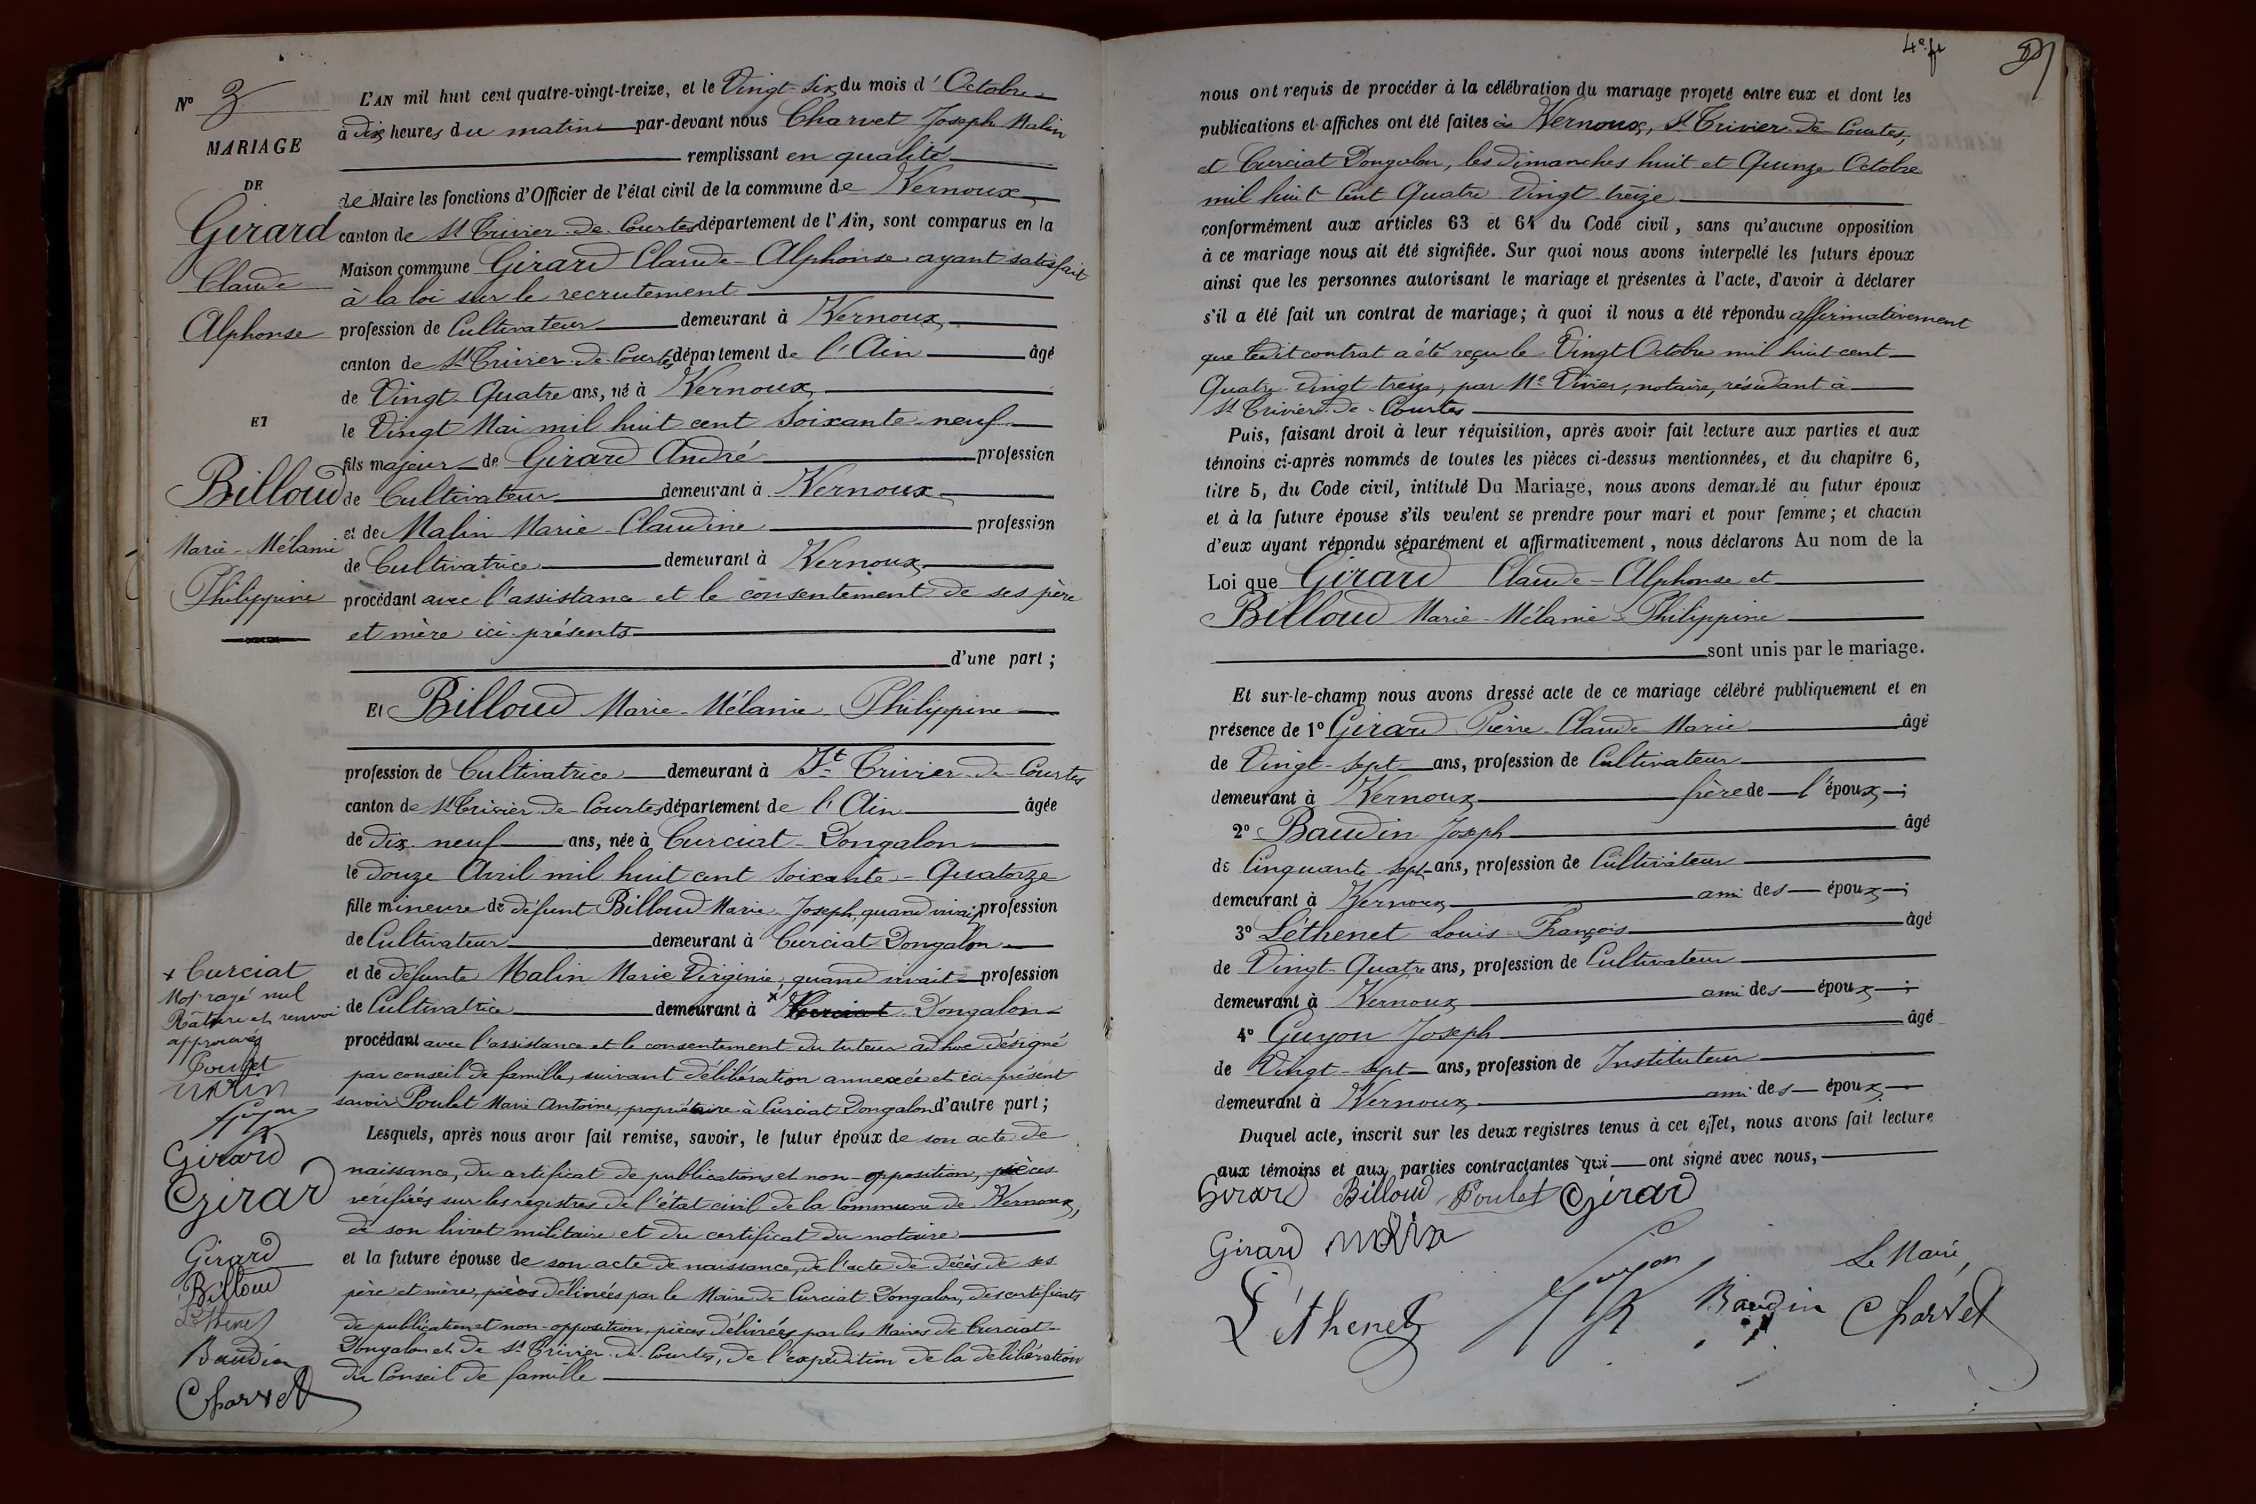 Nº 3
MARIAGE
DE
Girard
Claude
Alphonse
ET
Billoud
Marie-Mélanie
Philippine
L'AN mil huit cent quatre-vingt-treize, et le Vingt-six du mois d'Octobre
à dix heures du matin par-devant nous Charvet Joseph Malin
remplissant en qualité
de Maire les fonctions d'Officier de l'état civil de la commune de Vernoux
canton de St Trivier-de-Courtes département de l'Ain, sont comparus en la
Maison commune Girard Claude-Alphonse ayant satisfait
à la loi sur le recrutement
profession de Cultivateur demeurant à Vernoux
canton de St Trivier-de-Courtes département de l'Ain âgé
de Vingt-Quatre ans, né à Vernoux
le Vingt Mai mil huit cent soixante-neuf
fils majeur de Girard André profession
de Cultivateur demeurant à Vernoux
et de Malin Marie-Claudine profession
de Cultivatrice demeurant à Vernoux
procédant avec l'assistance et le consentement de ses père
et mère ici présents
d'une part ;
Et Billoud Marie-Mélanie-Philippine
profession de Cultivatrice demeurant à St Trivier-de-Courtes
canton de St Trivier-de-Courtes département de l'Ain âgée
de dix-neuf ans, née à Curciat-Dongalon
le douze Avril mil huit cent soixante-Quatorze
fille mineure de défunt Billoud Marie-Joseph, quand vivait profession
de Cultivateur demeurant à Curciat Dongalon
et de défunte Malin Marie Virginie, quand vivait profession
de Cultivatrice demeurant à x Dongalon
procédant avec l'assistance et le consentement du tuteur ad hoc désigné
par conseil de famille, suivant délibération annexée et ici-présent
savoir Poulet Marie Antoine, propriétaire à Curciat Dongalon d'autre part ;
Lesquels, après nous avoir fait remise, savoir, le futur époux de son acte de
naissance, du certificat de publications et non-opposition, pièces
vérifiées sur les registres de l'état civil de la Commune de Vernoux,
de son livret militaire et du certificat du notaire
et la future épouse de son acte de naissance, de l'acte de décès de ses
père et mère, pièces délivrées par le Maire de Curciat Dongalon, des certificats
de publication et non-opposition, pièces délivrées par les Maires de Curciat-
Dongalon et de St Trivier-de-Courtes, de l'expédition de la délibération
du Conseil de famille
x Curciat
Mot rayé nul
Râture et renvoi
approuvés
Poulet
Malin
Guyon
Girard
Girard
Girard
Billoud
Léthenet
Baudin
Charvet
4e ft
nous ont requis de procéder à la célébration du mariage projeté entre eux et dont les
publications et affiches ont été faites à Vernoux, St Trivier-de-Courtes,
et Curciat Dongalon, les dimanches huit et Quinze Octobre
mil huit cent Quatre-Vingt-treize
conformément aux articles 63 et 64 du Code civil, sans qu'aucune opposition
à ce mariage nous ait été signifiée. Sur quoi nous avons interpellé les futurs époux
ainsi que les personnes autorisant le mariage et présentes à l'acte, d'avoir à déclarer
s'il a été fait un contrat de mariage ; à quoi il nous a été répondu affirmativement
que ledit contrat a été reçu le Vingt Octobre mil huit cent
Quatre-Vingt-treize, par Me Vivier, notaire, résidant à
St Trivier-de-Courtes
Puis, faisant droit à leur réquisition, après avoir fait lecture aux parties et aux
témoins ci-après nommés de toutes les pièces ci-dessus mentionnées, et du chapitre 6,
titre 5, du Code civil, intitulé Du Mariage, nous avons demandé au futur époux
et à la future épouse s'ils veulent se prendre pour mari et pour femme ; et chacun
d'eux ayant répondu séparément et affirmativement, nous déclarons Au nom de la
Loi que Girard Claude-Alphonse et
Billoud Marie-Mélanie-Philippine
sont unis par le mariage.
Et sur-le-champ nous avons dressé acte de ce mariage célébré publiquement et en
présence de 1º Girard Pierre-Claude-Marie âgé
de Vingt-sept ans, profession de Cultivateur
demeurant à Vernoux frère de l'époux ;
2º Baudin Joseph âgé
de Cinquante-sept ans, profession de Cultivateur
demeurant à Vernoux ami des époux ;
3º Léthenet Louis-François âgé
de Vingt-Quatre ans, profession de Cultivateur
demeurant à Vernoux ami des époux ;
4º Guyon Joseph âgé
de Vingt-sept ans, profession de Instituteur
demeurant à Vernoux ami des époux
Duquel acte, inscrit sur les deux registres tenus à cet effet, nous avons fait lecture
aux témoins et aux parties contractantes qui ont signé avec nous,
Girard Billoud Poulet Girard
Girard Malin
Guyon Le Maire,
Léthenet Baudin Charvet